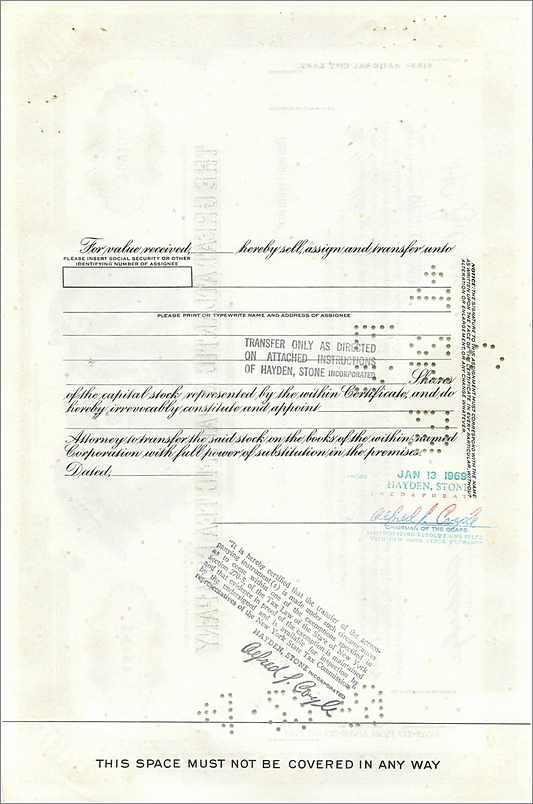 For value received, hereby sell, assign and transfer unto
PLEASE INSERT SOCIAL SECURITY OR OTHER
IDENTIFYING NUMBER OF ASSIGNEE
PLEASE PRINT OR TYPEWRITE NAME AND ADDRESS OF ASSIGNEE
TRANSFER ONLY AS DIRECTED
ON ATTACHED INSTRUCTIONS
OF HAYDEN, STONE INCORPORATED
Shares
of the capital stock represented by the within Certificate, and do
hereby irrevocably constitute and appoint
Attorney to transfer the said stock on the books of the within named
Corporation with full power of substitution in the premises.
Dated,
JAN 13 1969
HAYDEN, STONE
INCORPORATED
Alfred L. Coyle
CHAIRMAN OF THE BOARD
NOTICE: THE SIGNATURE TO THIS ASSIGNMENT MUST CORRESPOND WITH THE NAME
AS WRITTEN UPON THE FACE OF THE CERTIFICATE IN EVERY PARTICULAR, WITHOUT
ALTERATION OR ENLARGEMENT OR ANY CHANGE WHATEVER.
"It is hereby certified that the transfer of the accom-
panying instrument(s) is made under such circumstances
as to come within one of the exemptions specified in
Section 270-5, of the Tax Law of the State of New York
and that evidence in proof of the exemption is maintained
by the undersigned and is available for inspection by
representatives of the New York State Tax Commission."
HAYDEN, STONE INCORPORATED
Alfred L. Coyle
THIS SPACE MUST NOT BE COVERED IN ANY WAY